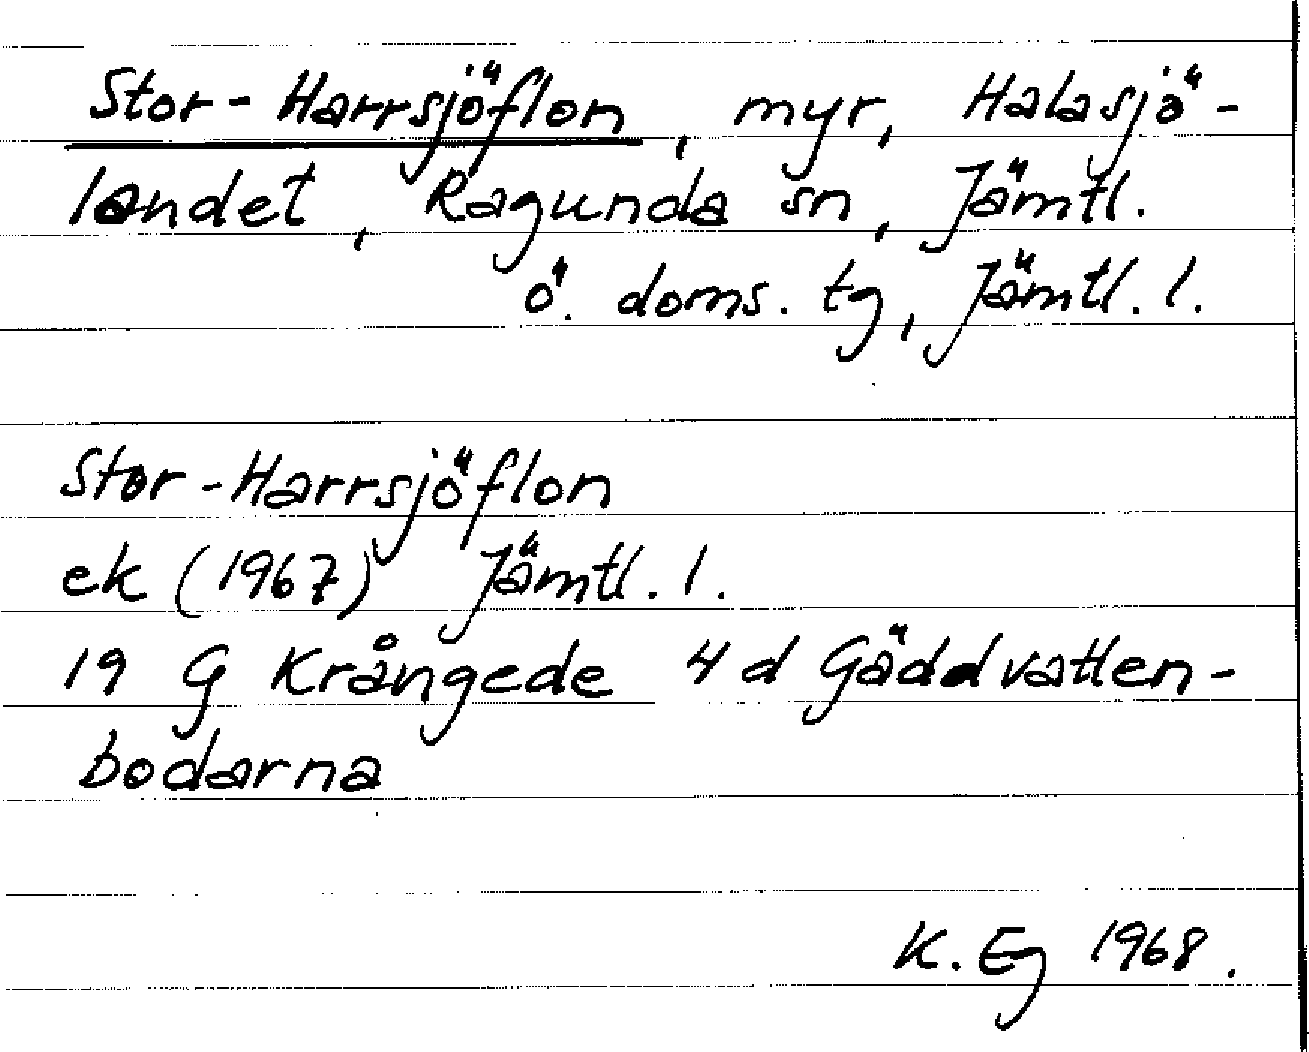 Stor-Harrsjöflon, myr, Halasjö-
landet, Ragunda sn, Jämtl.
ö. doms. tg, Jämtl. l.
Stor-Harrsjöflon
ek (1967) Jämtl. l.
19 G Krångede 4 d Gäddvatten-
bodarna
K. Eg 1968.